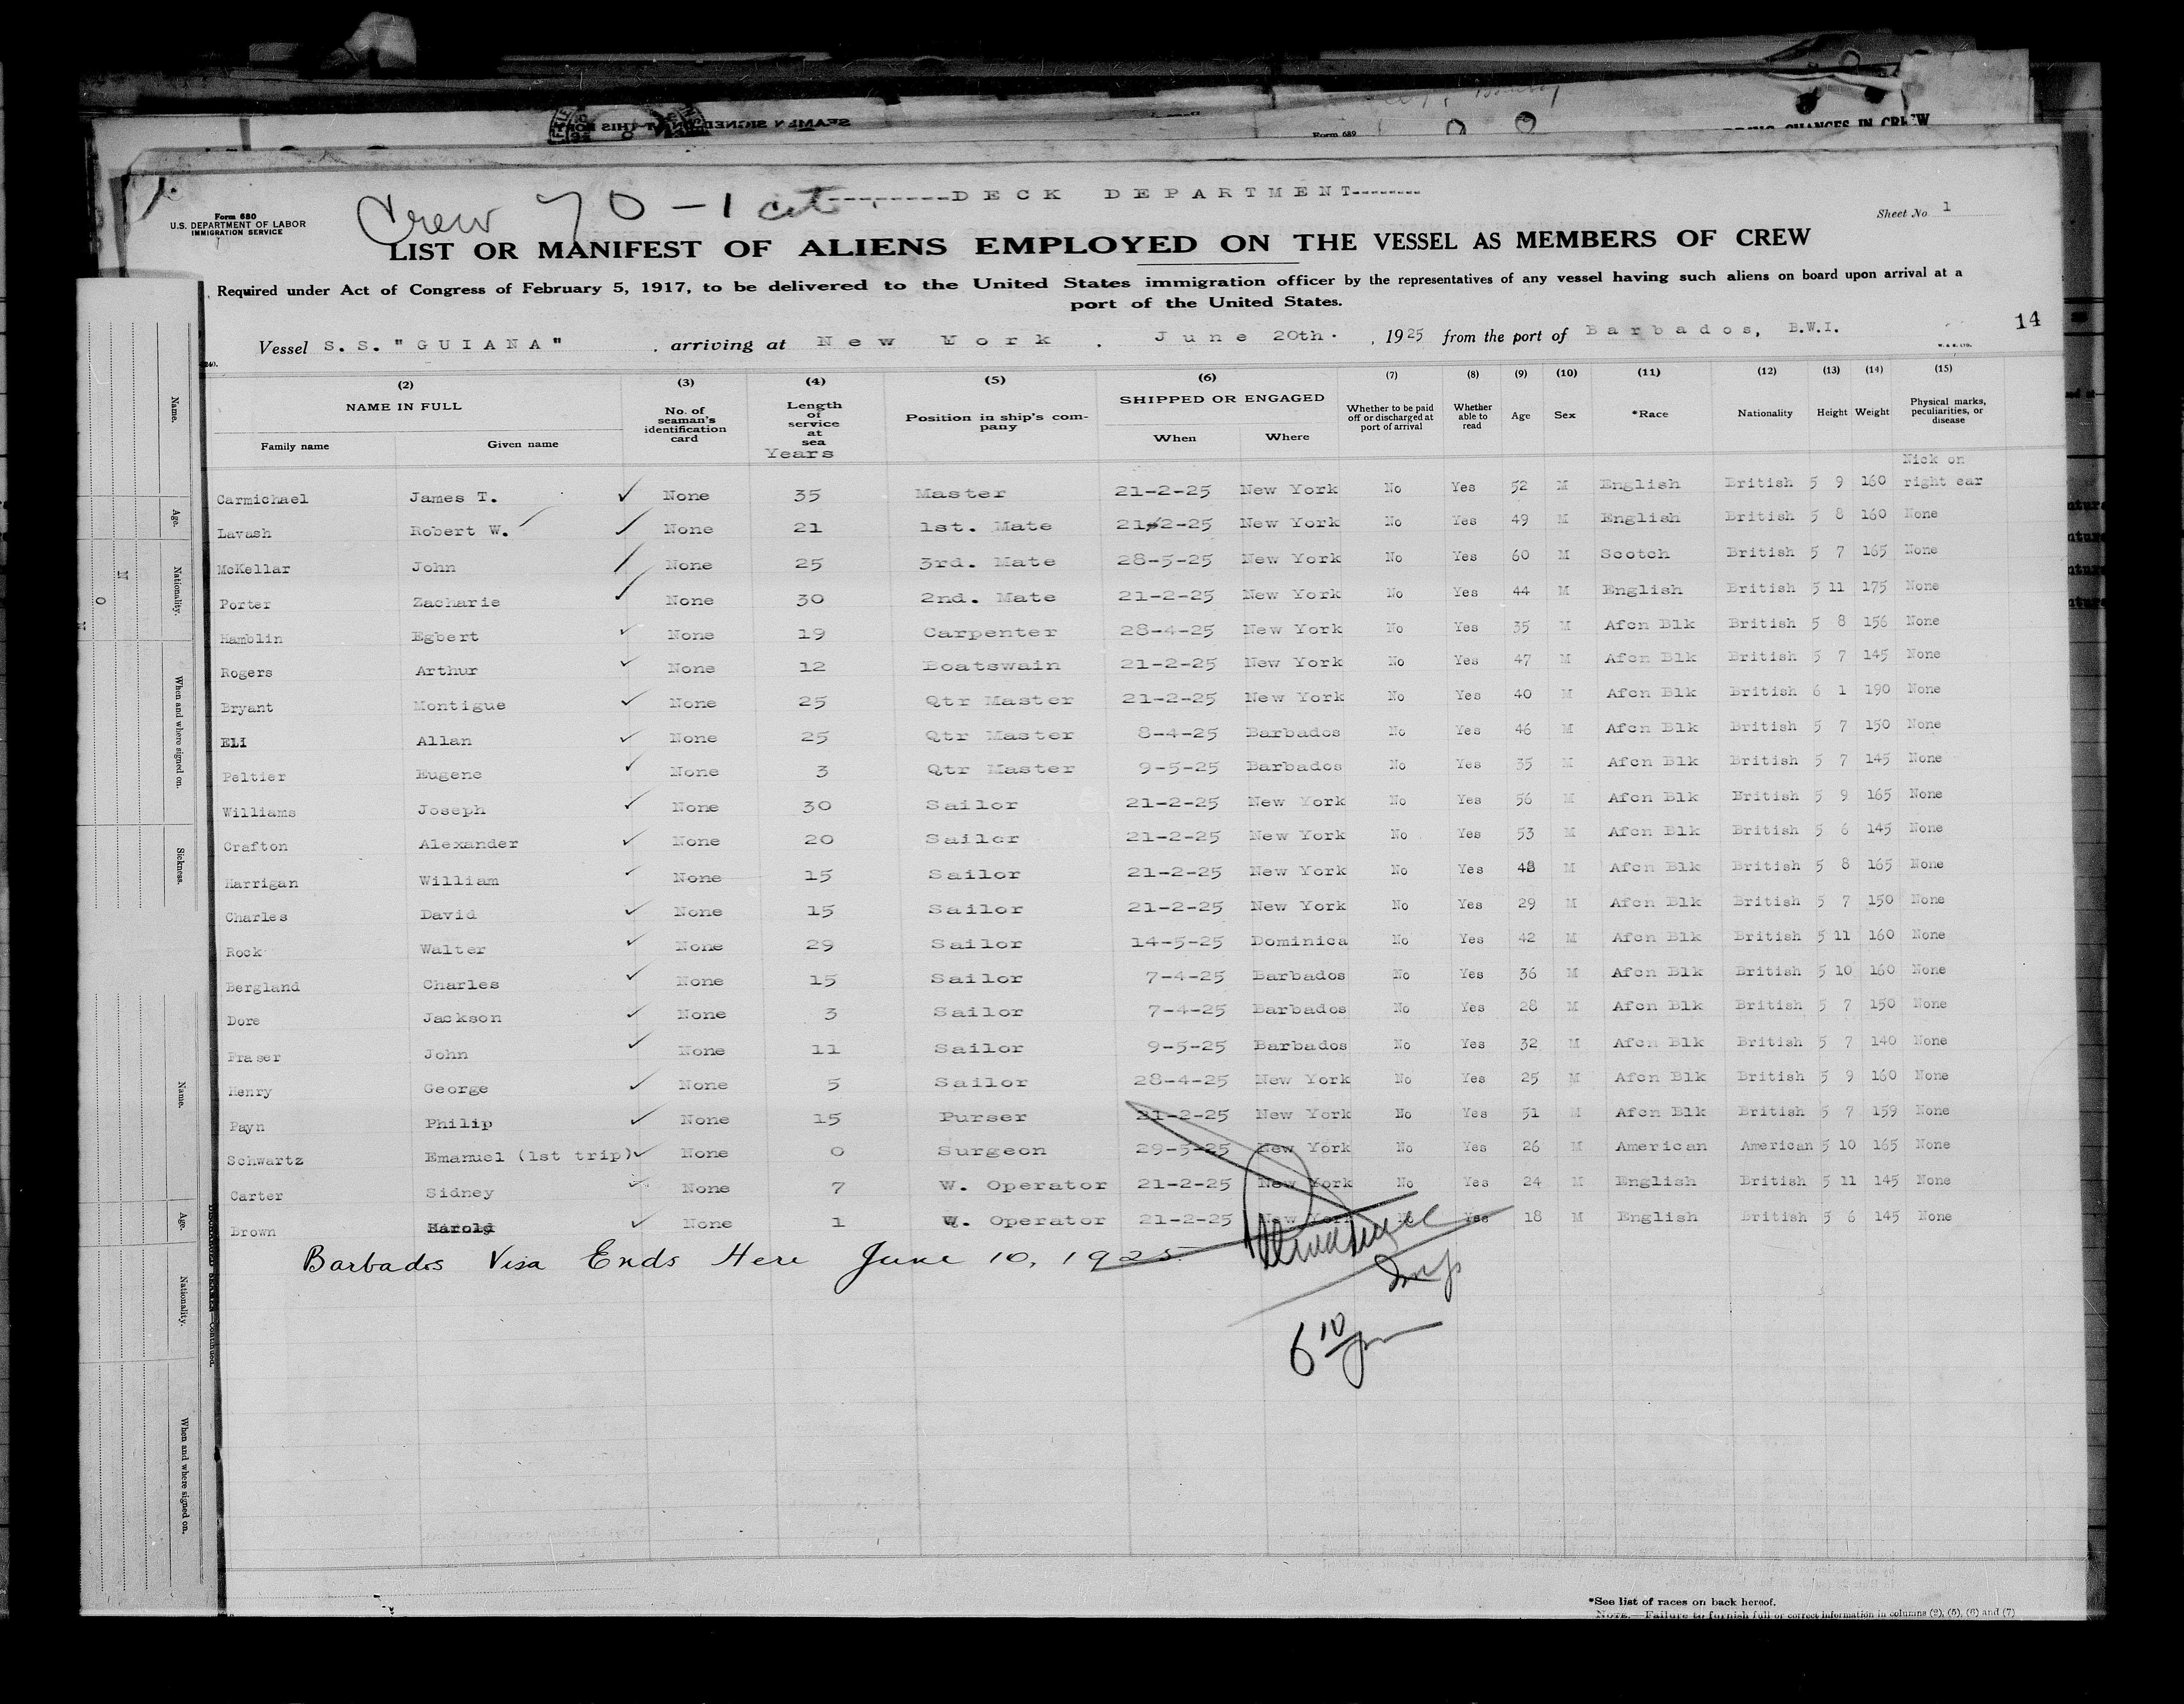 SEAMEN SIGNED ON AT THIS PORT
Form 689
CHANGES IN CREW
Crew 70 - 1 cit. --------DECK DEPARTMENT--------
Form 680
U.S. DEPARTMENT OF LABOR
IMMIGRATION SERVICE
Sheet No. 1
LIST OR MANIFEST OF ALIENS EMPLOYED ON THE VESSEL AS MEMBERS OF CREW
Required under Act of Congress of February 5, 1917, to be delivered to the United States immigration officer by the representatives of any vessel having such aliens on board upon arrival at a
port of the United States.
14
Vessel S. S. "GUIANA", arriving at New York. June 20th., 1925 from the port of Barbados, B.W.I.
(2) (3) (4) (5) (6) (7) (8) (9) (10) (11) (12) (13) (14) (15)
NAME IN FULL No. of seaman's identification card Length of service at sea Position in ship's company SHIPPED OR ENGAGED Whether to be paid off or discharged at port of arrival Whether able to read Age Sex *Race Nationality Height Weight Physical marks, peculiarities, or disease
Family name Given name Years When Where
Carmichael James T. ✓ None 35 Master 21-2-25 New York No Yes 52 M English British 5 9 160 Nick on right ear
Lavash Robert W. ✓ None 21 1st. Mate 21-2-25 New York No Yes 49 M English British 5 8 160 None
McKellar John ✓ None 25 3rd. Mate 28-5-25 New York No Yes 60 M Scotch British 5 7 165 None
Porter Zacharie ✓ None 30 2nd. Mate 21-2-25 New York No Yes 44 M English British 5 11 175 None
Hamblin Egbert ✓ None 19 Carpenter 28-4-25 New York No Yes 35 M Afcn Blk British 5 8 156 None
Rogers Arthur ✓ None 12 Boatswain 21-2-25 New York No Yes 47 M Afcn Blk British 5 7 145 None
Bryant Montigue ✓ None 25 Qtr Master 21-2-25 New York No Yes 40 M Afcn Blk British 6 1 190 None
ELI Allan ✓ None 25 Qtr Master 8-4-25 Barbados No Yes 46 M Afcn Blk British 5 7 150 None
Peltier Eugene ✓ None 3 Qtr Master 9-5-25 Barbados No Yes 35 M Afcn Blk British 5 7 145 None
Williams Joseph ✓ None 30 Sailor 21-2-25 New York No Yes 56 M Afcn Blk British 5 9 165 None
Crafton Alexander ✓ None 20 Sailor 21-2-25 New York No Yes 53 M Afcn Blk British 5 6 145 None
Harrigan William ✓ None 15 Sailor 21-2-25 New York No Yes 48 M Afcn Blk British 5 8 165 None
Charles David ✓ None 15 Sailor 21-2-25 New York No Yes 29 M Afcn Blk British 5 7 150 None
Rock Walter ✓ None 29 Sailor 14-5-25 Dominica No Yes 42 M Afcn Blk British 5 11 160 None
Bergland Charles ✓ None 15 Sailor 7-4-25 Barbados No Yes 36 M Afcn Blk British 5 10 160 None
Dore Jackson ✓ None 3 Sailor 7-4-25 Barbados No Yes 28 M Afcn Blk British 5 7 150 None
Fraser John ✓ None 11 Sailor 9-5-25 Barbados No Yes 32 M Afcn Blk British 5 7 140 None
Henry George ✓ None 5 Sailor 28-4-25 New York No Yes 25 M Afcn Blk British 5 9 160 None
Payn Philip ✓ None 15 Purser 21-2-25 New York No Yes 51 M Afcn Blk British 5 7 159 None
Schwartz Emanuel (1st trip) ✓ None 0 Surgeon 29-5-25 New York No Yes 26 M American American 5 10 165 None
Carter Sidney ✓ None 7 W. Operator 21-2-25 New York No Yes 24 M English British 5 11 145 None
Brown Harold ✓ None 1 W. Operator 21-2-25 New York No Yes 18 M English British 5 6 145 None
Barbados Visa Ends Here June 10, 1925
6 10
*See list of races on back hereof.
NOTE.—Failure to furnish full or correct information in columns (2), (5), (6) and (7)
Name.
Age.
Nationality.
When and where signed on.
Sickness.
Name.
Age.
Nationality.
When and where signed on.